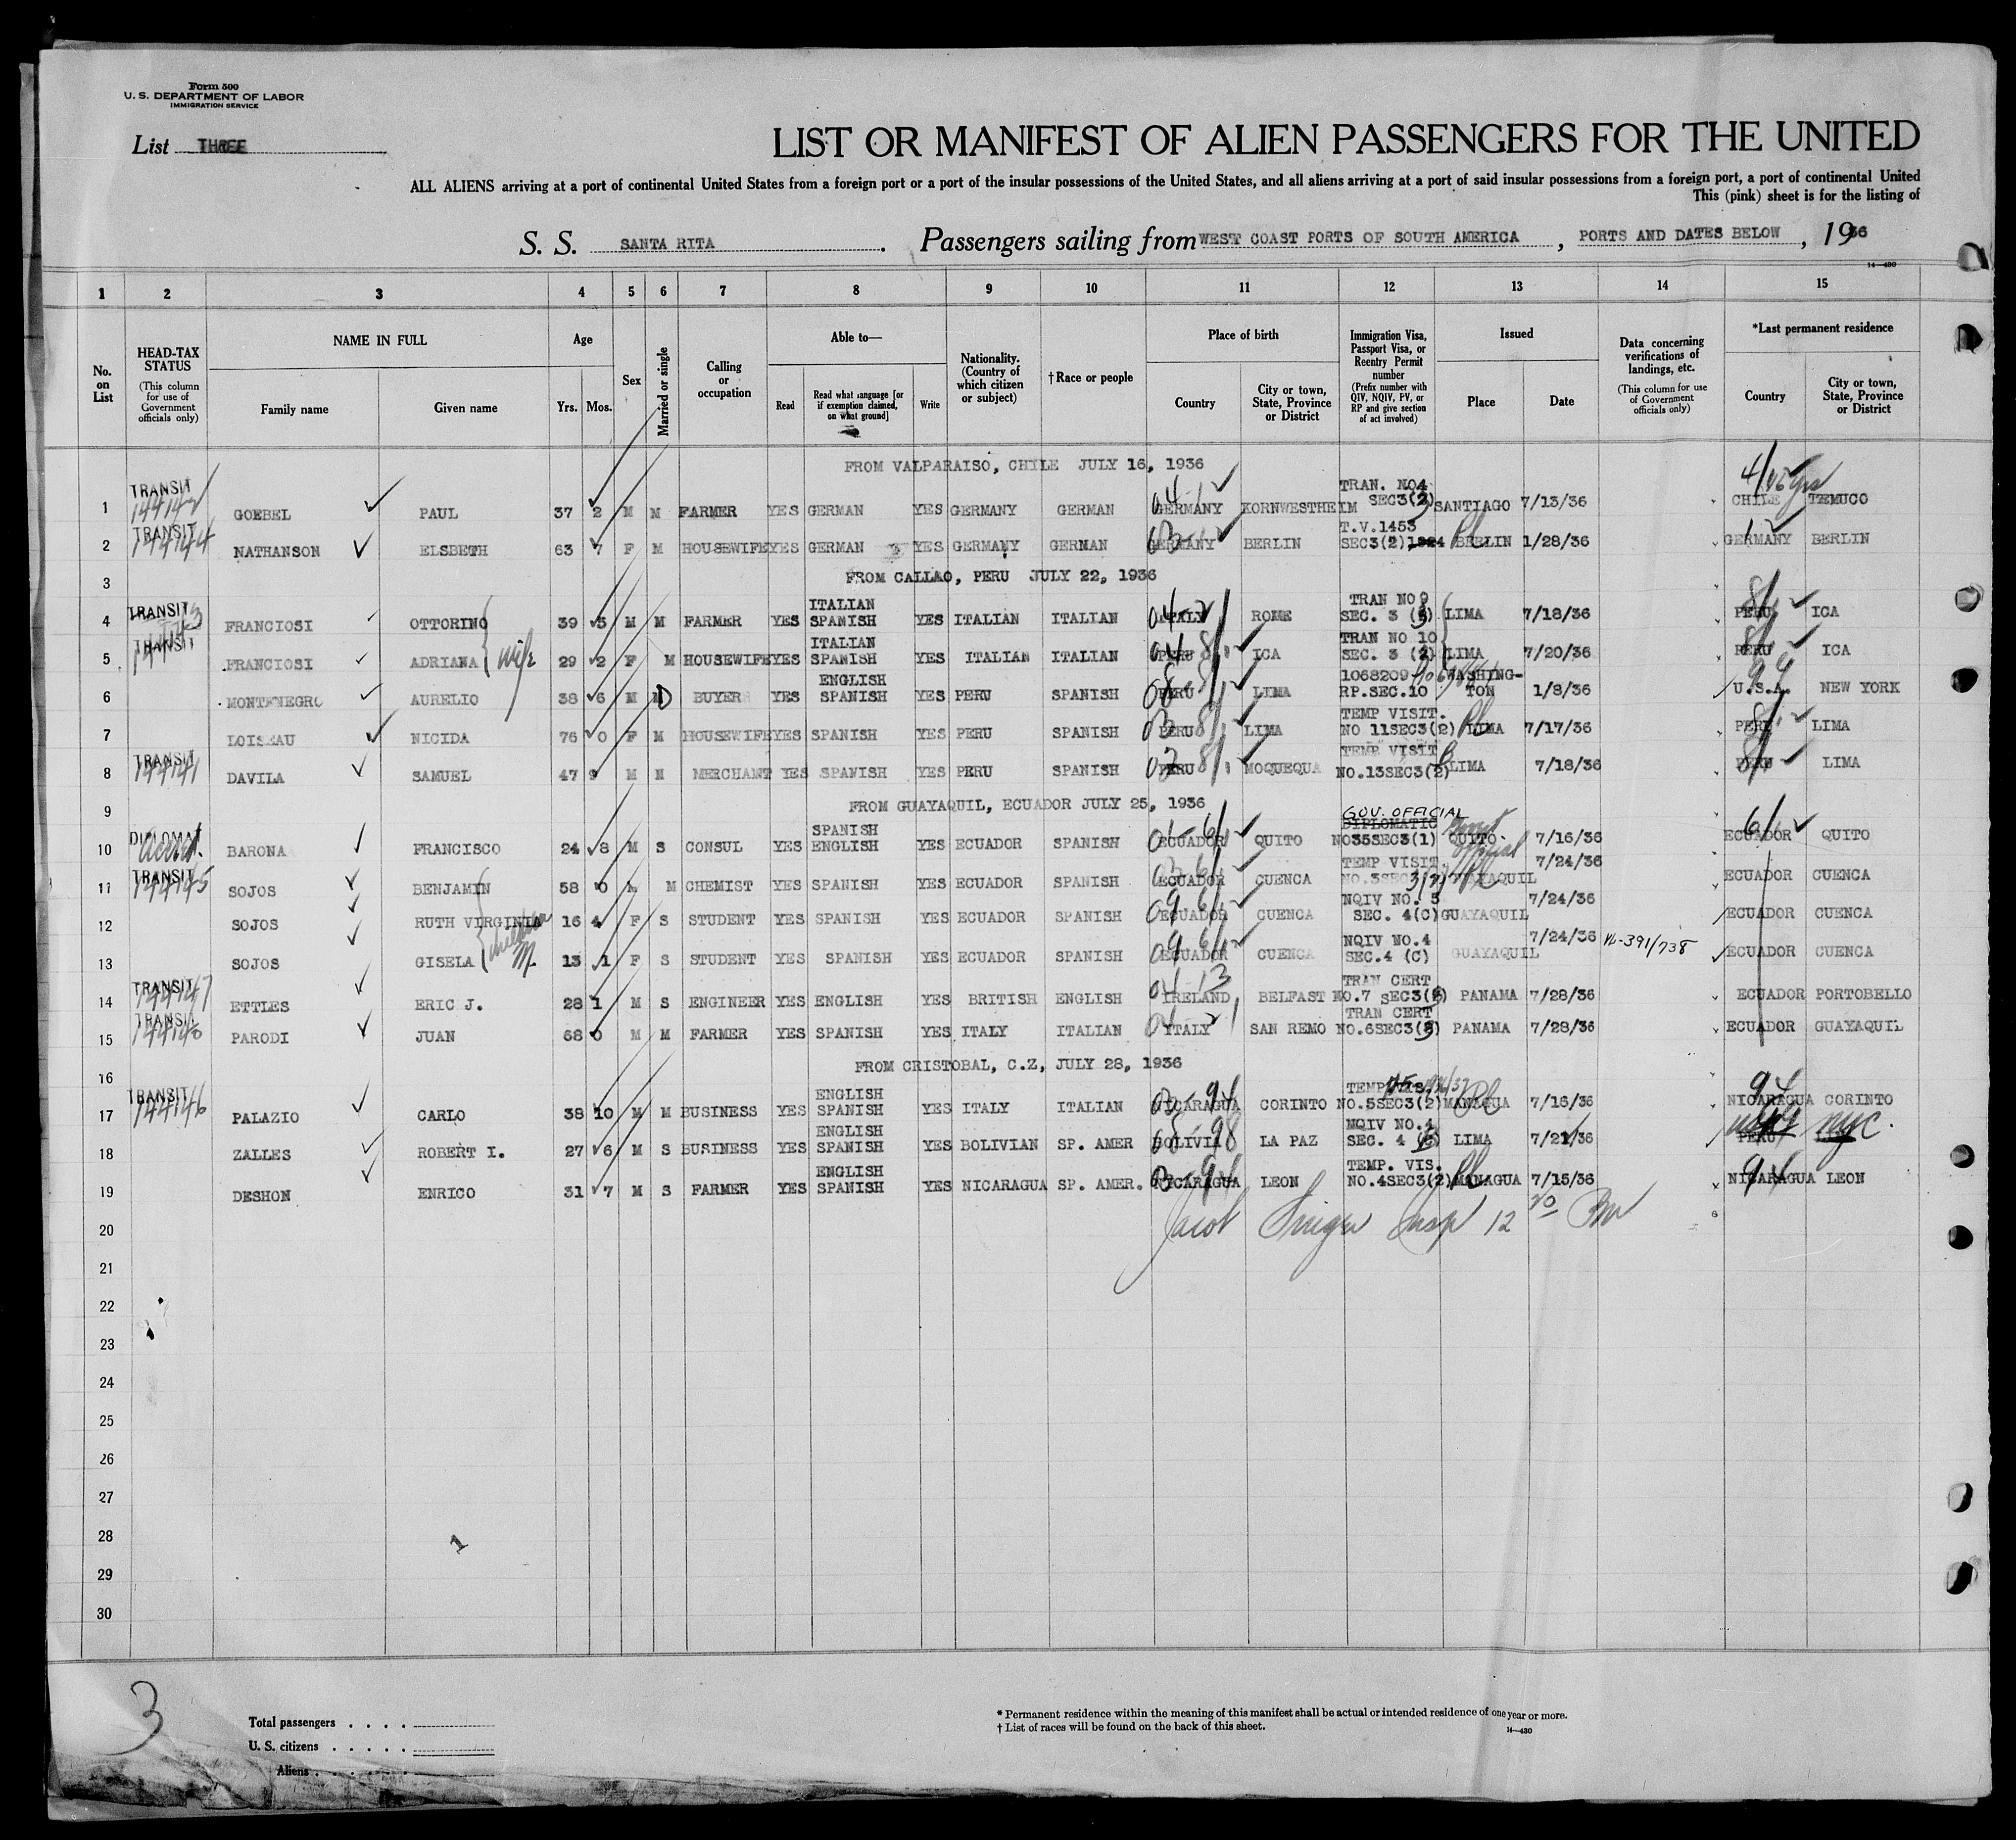 Form 500
U. S. DEPARTMENT OF LABOR
IMMIGRATION SERVICE
List THREE
LIST OR MANIFEST OF ALIEN PASSENGERS FOR THE UNITED
ALL ALIENS arriving at a port of continental United States from a foreign port or a port of the insular possessions of the United States, and all aliens arriving at a port of said insular possessions from a foreign port, a port of continental United
This (pink) sheet is for the listing of
S. S. SANTA RITA. Passengers sailing from WEST COAST PORTS OF SOUTH AMERICA, PORTS AND DATES BELOW, 1936
14—430
1 2 3 4 5 6 7 8 9 10 11 12 13 14 15
No. on List
HEAD-TAX STATUS (This column for use of Government officials only)
NAME IN FULL
Family name Given name
Age
Yrs. Mos.
Sex
Married or single
Calling or occupation
Able to—
Read Read what language [or if exemption claimed, on what ground] Write
Nationality. (Country of which citizen or subject)
†Race or people
Place of birth
Country City or town, State, Province or District
Immigration Visa, Passport Visa, or Reentry Permit number (Prefix number with QIV, NQIV, PV, or RP and give section of act involved)
Issued
Place Date
Data concerning verifications of landings, etc. (This column for use of Government officials only)
*Last permanent residence
Country City or town, State, Province or District
FROM VALPARAISO, CHILE JULY 16, 1936
1 TRANSIT GOEBEL PAUL 37 2 M M FARMER YES GERMAN YES GERMANY GERMAN GERMANY KORNWESTHEIM TRAN. NO4 SEC3(2) SANTIAGO 7/13/36 CHILE TEMUCO
2 TRANSIT 144144 NATHANSON ELSBETH 63 7 F M HOUSEWIFE YES GERMAN YES GERMANY GERMAN GERMANY BERLIN T.V.1453 SEC3(2)1924 BERLIN 1/28/36 GERMANY BERLIN
3 FROM CALLAO, PERU JULY 22, 1936
4 TRANSIT FRANCIOSI OTTORINO 39 5 M M FARMER YES ITALIAN SPANISH YES ITALIAN ITALIAN ITALY ROME TRAN NO9 SEC. 3 (3) LIMA 7/18/36 PERU ICA
5 TRANSIT FRANCIOSI ADRIANA wife 29 2 F M HOUSEWIFE YES ITALIAN SPANISH YES ITALIAN ITALIAN PERU ICA TRAN NO 10 SEC. 3 (3) LIMA 7/20/36 PERU ICA
6 MONTENEGRO AURELIO 38 6 M D BUYER YES ENGLISH SPANISH YES PERU SPANISH PERU LIMA 1068209 RP.SEC.10 WASHINGTON 1/8/36 U.S.A. NEW YORK
7 LOISEAU NICIDA 76 0 F M HOUSEWIFE YES SPANISH YES PERU SPANISH PERU LIMA TEMP VISIT. NO 11SEC3(2) LIMA 7/17/36 PERU LIMA
8 TRANSIT 144141 DAVILA SAMUEL 47 9 M M MERCHANT YES SPANISH YES PERU SPANISH PERU MOQUEQUA TEMP VISIT NO.13SEC3(2) LIMA 7/18/36 PERU LIMA
9 FROM GUAYAQUIL, ECUADOR JULY 25, 1936
10 DIPLOMAT BARONA FRANCISCO 24 8 M S CONSUL YES SPANISH ENGLISH YES ECUADOR SPANISH ECUADOR QUITO GOV. OFFICIAL DIPLOMATIC NO35SEC3(1) QUITO 7/16/36 ECUADOR QUITO
11 TRANSIT 144145 SOJOS BENJAMIN 58 0 M M CHEMIST YES SPANISH YES ECUADOR SPANISH ECUADOR CUENCA TEMP VISIT. NO.3SEC3(2) GUAYAQUIL 7/24/36 ECUADOR CUENCA
12 SOJOS RUTH VIRGINIA 16 4 F S STUDENT YES SPANISH YES ECUADOR SPANISH ECUADOR CUENCA NQIV NO. 3 SEC. 4(C) GUAYAQUIL 7/24/36 ECUADOR CUENCA
13 SOJOS GISELA 13 1 F S STUDENT YES SPANISH YES ECUADOR SPANISH ECUADOR CUENCA NQIV NO.4 SEC.4 (C) GUAYAQUIL 7/24/36 VL-391/738 ECUADOR CUENCA
14 TRANSIT 144147 ETTLES ERIC J. 28 1 M S ENGINEER YES ENGLISH YES BRITISH ENGLISH IRELAND BELFAST TRAN CERT NO.7 SEC3(3) PANAMA 7/28/36 ECUADOR PORTOBELLO
15 TRANSIT PARODI JUAN 68 0 M M FARMER YES SPANISH YES ITALY ITALIAN ITALY SAN REMO TRAN CERT NO.6SEC3(3) PANAMA 7/28/36 ECUADOR GUAYAQUIL
16 FROM CRISTOBAL, C.Z, JULY 28, 1936
17 TRANSIT 144146 PALAZIO CARLO 38 10 M M BUSINESS YES ENGLISH SPANISH YES ITALY ITALIAN NICARAGUA CORINTO TEMP VIS. NO.5SEC3(2) MANAGUA 7/16/36 NICARAGUA CORINTO
18 ZALLES ROBERT I. 27 6 M S BUSINESS YES ENGLISH SPANISH YES BOLIVIAN SP. AMER BOLIVIA LA PAZ NQIV NO.4 SEC. 4 LIMA 7/21/36 PERU NYC.
19 DESHON ENRICO 31 7 M S FARMER YES ENGLISH SPANISH YES NICARAGUA SP. AMER. NICARAGUA LEON TEMP. VIS. NO.4SEC3(2) MANAGUA 7/15/36 NICARAGUA LEON
20
21
22
23
24
25
26
27
28
29
30
3
Total passengers
U. S. citizens
Aliens
* Permanent residence within the meaning of this manifest shall be actual or intended residence of one year or more.
† List of races will be found on the back of this sheet.
14—430